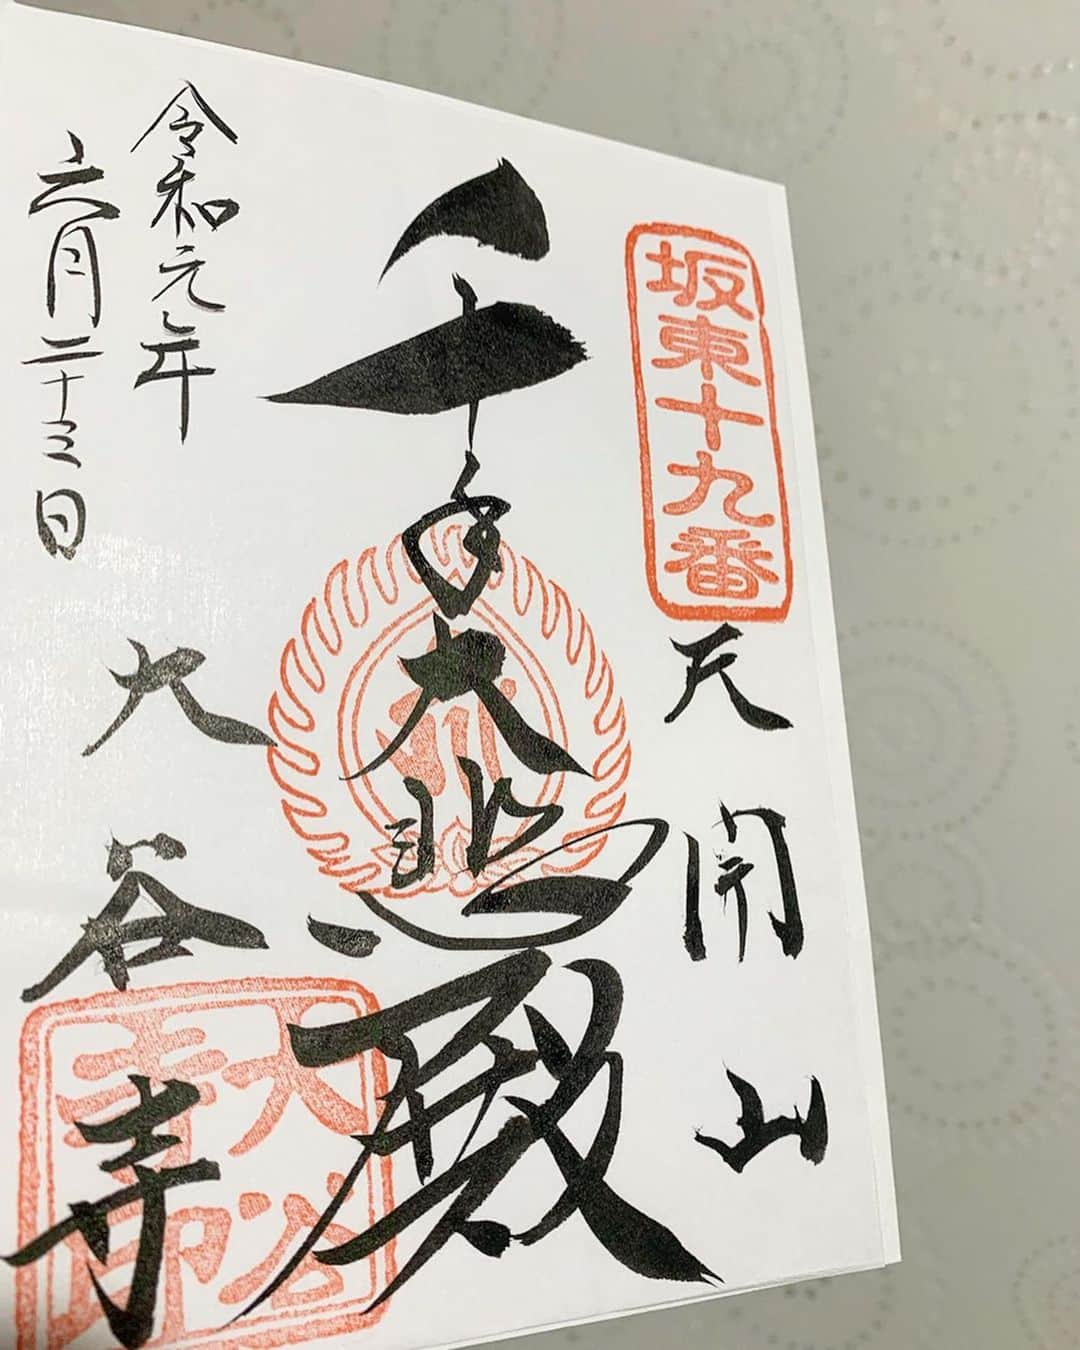 坂東十九番
天開山
千手大悲殿
大谷寺
大谷
寺印
令和元年
六月二十三日